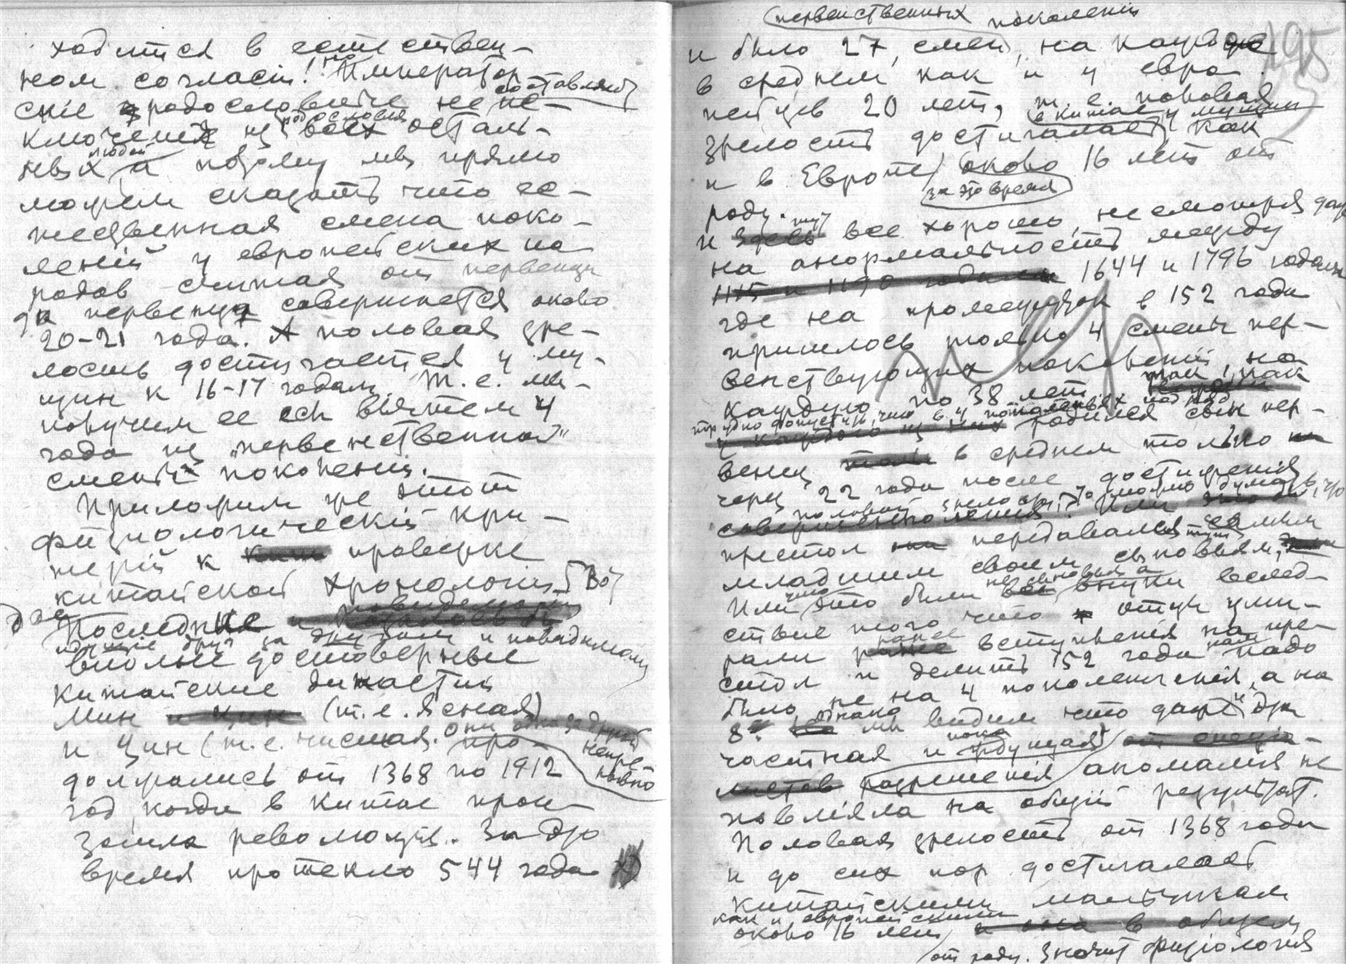 ходится в естествен-
ном согласіи! Император
скіе родословные не
составляют
ключенія из всех осталь-
родословия
ных а поэтому мы прямо
можем сказать что
жественная смена поко-
леній у европейских на
родов считая от первенца
до первенца совершается около
20-21 года. А половая зре-
лость достигается у му-
щин к 16-17 годам, т.е. мы
получим ее если вычтем 4
года из "первенственной"
смены поколеній.
Приложим же этот
физіологическій кри-
терій к проверке
китайской хронологіи. Вот
Последніе
идущие друг за другом и повидимому
вполне достоверные
китайские династии
Мин (т.е. Ясная)
и Цин (т.е. чистая. они про-
непре-
рывно
должались от 1368 по 1912
год, когда в Китае прои-
зошла революція. За это
время протекло 544 года
первенственных поколеній
195
и было 27 смен, на каждую
в среднем как и у евро
пейцев 20 лет, т.е. половая
в Китае у мущин
зрелость достигалась как
и в Европе около 16 лет от
за это время
роду.
И тут все хорошо, несмотря даже
на анормальность между
1644 и 1796 годами
где на промежуток в 152 года
пришлось только 4 смены пер-
венствующих поколеній, на
каждую по 38 лет
трудно допустить, что в 4 поколеніях подряд
родился сын пер-
венец в среднем только
через 22 года после достиженія
половой зрелости, и можно думать, что
престол передавался самым
младшим своим сыновьям,
Или это были не сыновья а внуки вслед-
ствие того что отцы уми-
рали ранее вступленія на пре-
стол и делить 152 года надо
было не на 4 поколенія, а на
8? Однако мы видим что даже и эта
частная и пока ждущая
разрешенія аномалія не
повліяла на общій результат.
Половая зрелость от 1368 года
и до сих пор достигалась
китайскими мальчиками
как и европейскими
около 16 лет
от роду. Значит физіологія